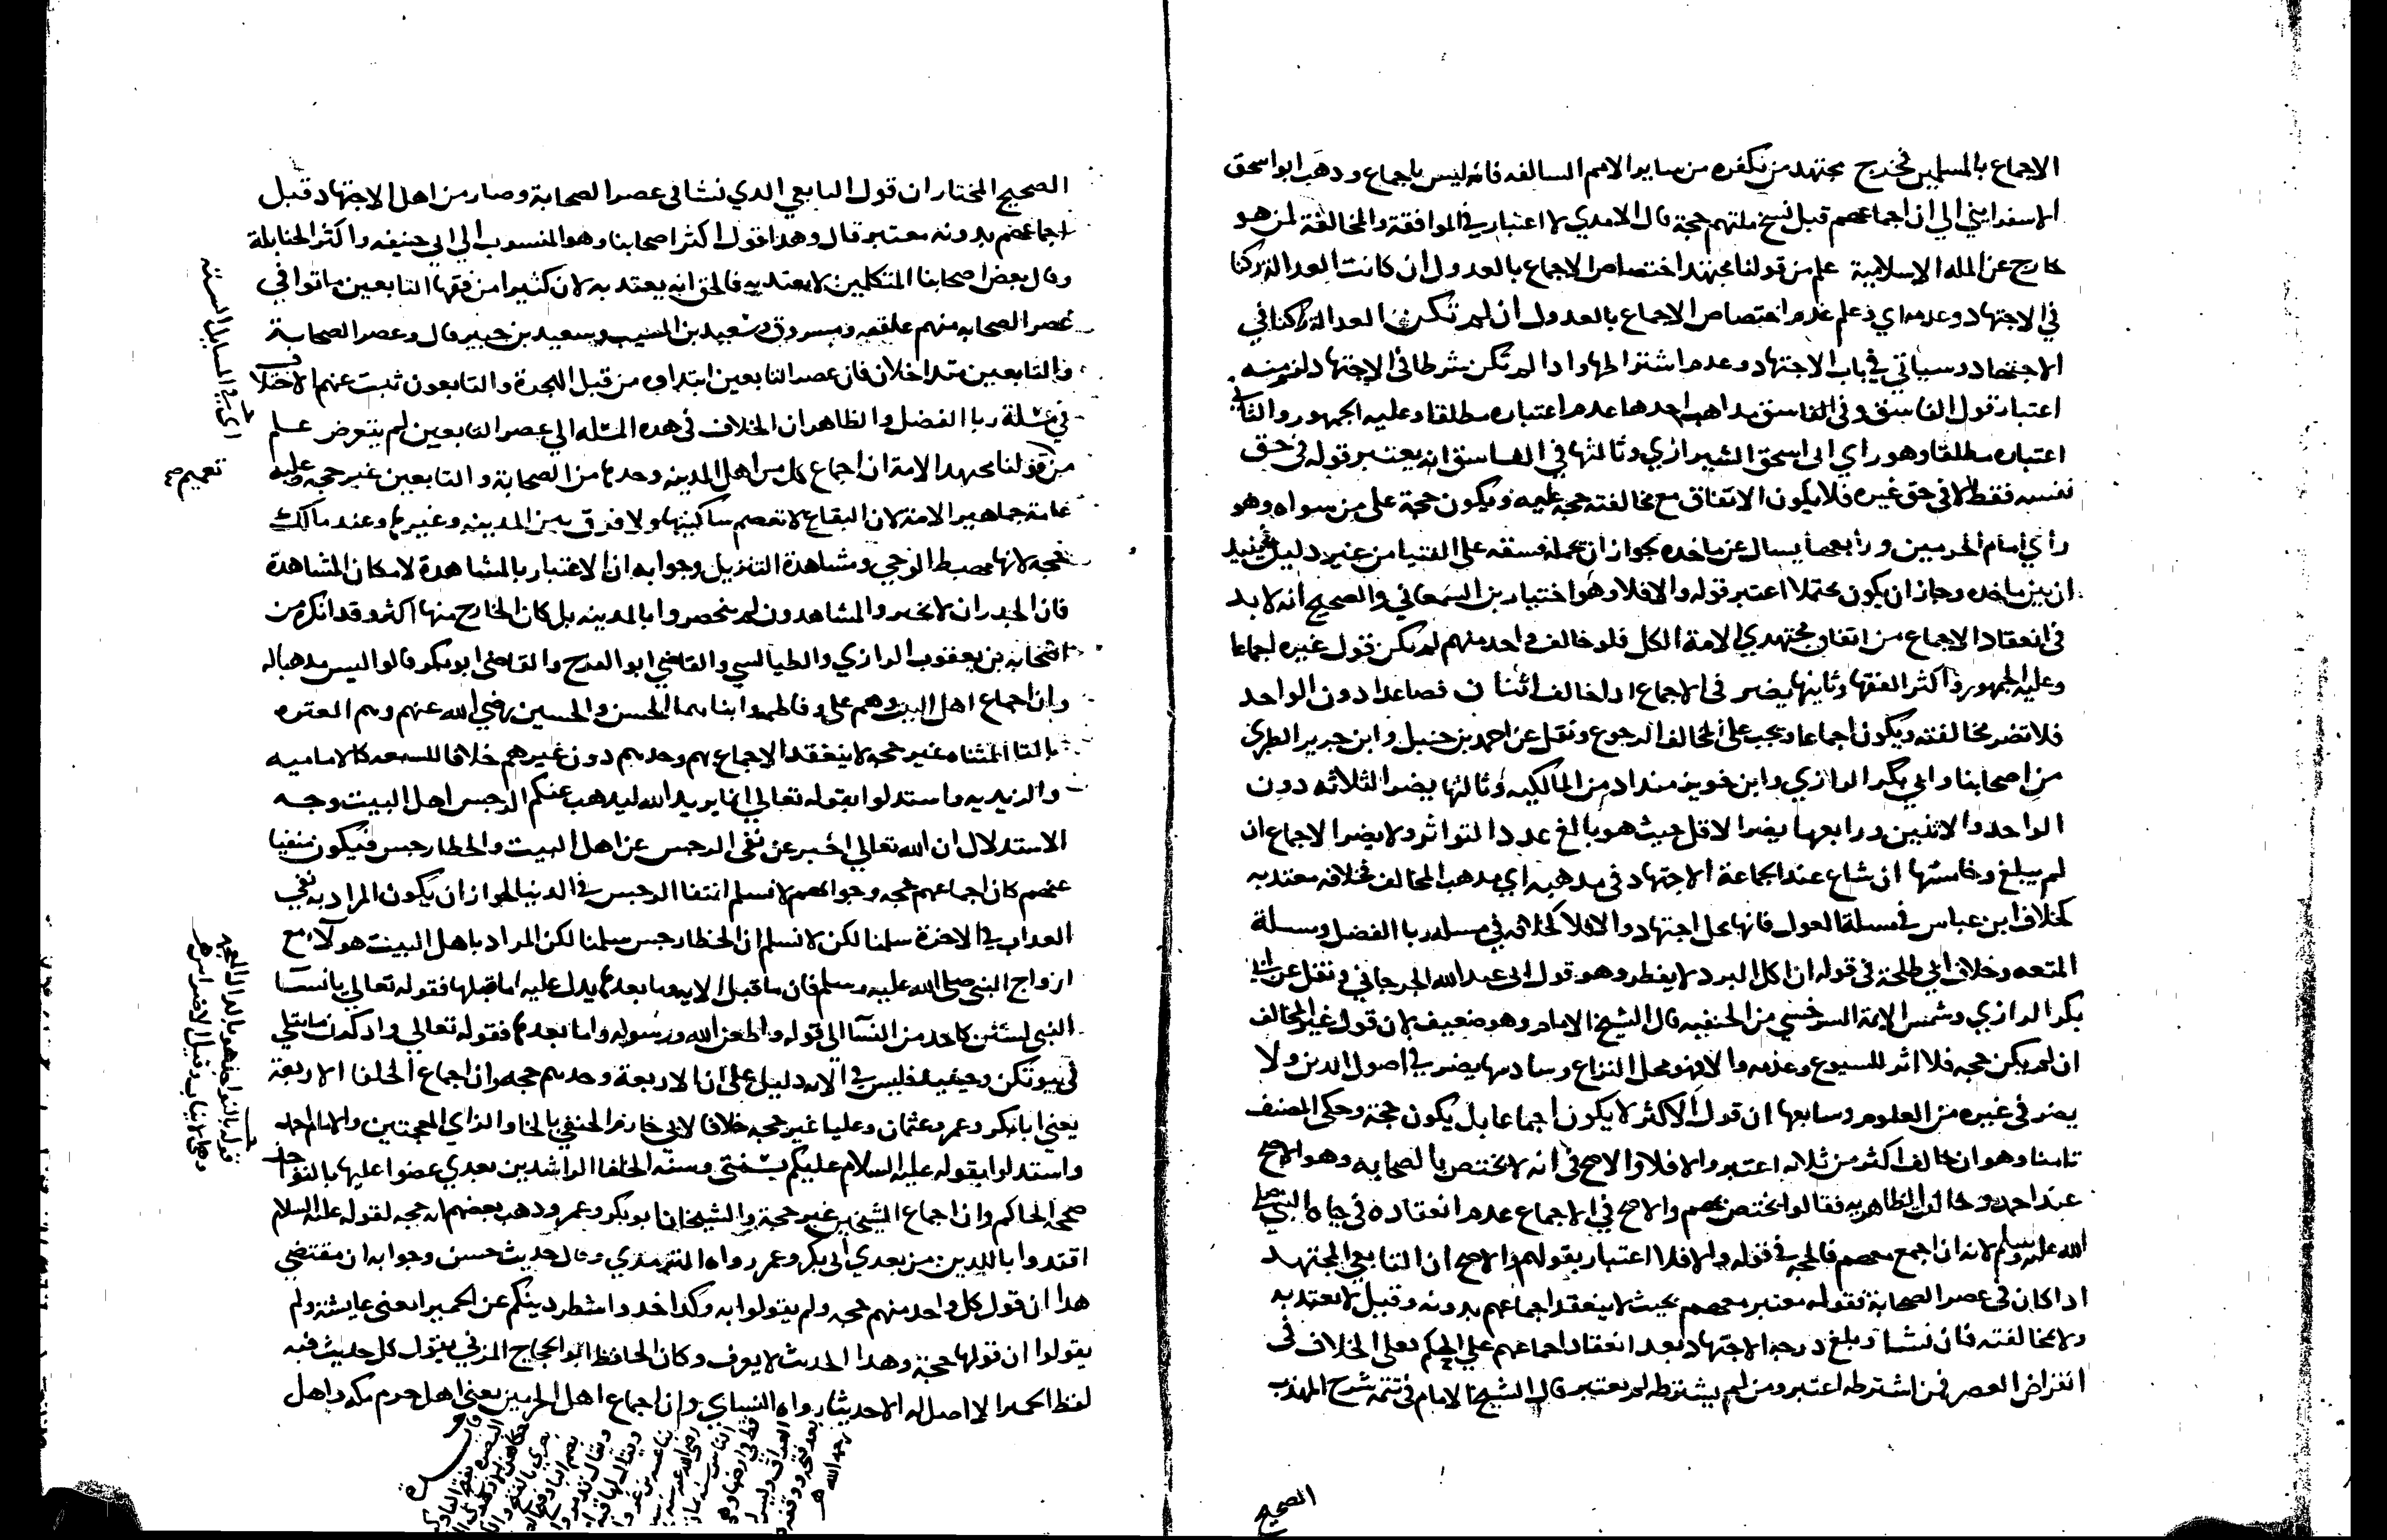 الاجماع بالمسلمين فخرج مجتهد من نكفره من ساير الامم السالفه فانه ليس باجماع وذهب ابو اسحق
الاسفرايني الي ان اجماعهم قبل نسخ ملتهم حجة قال الامدي لا اعتبار في الموافقة والمخالفة لمن هو
خارج عن المله الاسلامية علم من قولنا مجتهد اختصاص الاجماع بالعدول ان كانت العدالة ركنا
في الاجتهاد وعدمه اي وعلم عدم اختصاص الاجماع بالعدول ان لم تكن العدالة ركنا في
الاجتهاد وسياتي في باب الاجتهاد وعدم اشتراطها واذا لم تكن شرطا في الاجتهاد لزم منه
اعتبار قول الفاسق وفي الفاسق مذاهب احدها عدم اعتباره مطلقا وعليه الجمهور والثاني
اعتباره مطلقا وهو راي ابي اسحق الشيرازي وثالثها في الفاسق انه يعتبر قوله في حق
نفسه فقط لا في حق غيره فلا يكون الاتفاق مع مخالفته حجه عليه ويكون حجة علي من سواه وهو
راي امام الحرمين ورابعها يسال عن ماخذه لجواز ان يحمله فسقه علي الفتيا من غير دليل
ان بين ماخذه وجاز ان يكون محتملا اعتبر قوله والا فلا وهو اختيار بن السمعاني والصحيح انه لابد
في انعقاد الاجماع من اتفاق مجتهدي الامة الكل فلو خالف واحد منهم لم يكن قول غيره اجماعا
وعليه الجمهور واكثر الفقها وثانيها يضر في الاجماع اذا خالف اثنان فصاعدا دون الواحد
فلا تضر مخالفته ويكون اجماعا ويجب علي المخالف الرجوع ونقل عن احمد بن حنبل وابن جرير الطبري
من اصحابنا وابي بكر الرازي وابن خويز منداد من المالكيه وثالثها يضر الثلاثه دون
الواحد والاثنين ورابعها يضر الاقل حيث هو بالغ عدد التواتر ولا يضر الاجماع ان
لم يبلغ وخامسها ان شاع عند الجماعة الاجتهاد في مذهبه اي مذهب المخالف فخلافه معتد به
كخلاف ابن عباس في مسلة العول فانها محل اجتهاد والا فلا كخلافه في مسله ربا الفضل ومسلة
المتعه وخلاف ابي طلحة في قوله ان اكل البرد لا يفطر وهو قول ابي عبد الله الجرجاني ونقل عن ابي
بكر الرازي وشمس الايمة السرخسي من الحنفيه قال الشيخ الامام وهو ضعيف لان قول غير المخالف
ان لم يكن حجه فلا اثر للسيوع وعدمه والا فهو محل النزاع وسادسها يضر في اصول الدين ولا
يضر في غيره من العلوم وسابعها ان قول الاكثر لا يكون اجماعا بل يكون حجة وحكي المصنف
ثامنا وهو ان خالف اكثر من ثلاثه اعتبر والا فلا والاصح في انه لا يختص بالصحابه وهو الاصح
عند احمد وخالف الظاهريه فقالوا يختص بهم والاصح في الاجماع عدم انعقاده في حياه النبي صلي
الله عليه وسلم لانه ان اجمع معهم فالحجه في قوله والا فلا اعتبار بقولهم والاصح ان التابعي المجتهد
اذا كان في عصر الصحابة فقوله معتبر معهم بحيث لا ينعقد اجماعهم بدونه وقيل لا يعتد به
ولا بمخالفته فان نشا وبلغ درجه الاجتهاد بعد انعقاد اجماعهم علي الحكم فعلي الخلاف في
انقراض العصر فمن اشترطه اعتبر ومن لم يشترطه لم يعتبر قال الشيخ الامام في تتمة شرح المهذب
الصحيح
الصحيح المختار ان قول التابعي الذي نشا في عصر الصحابة وصار من اهل الاجتهاد قبل
اجماعهم بدونه معتبر قال وهذا قول اكثر اصحابنا وهو المنسوب الي ابي حنيفه واكثر الحنابلة
وقال بعض اصحابنا المتكلمين لا يعتد به فالحق انه يعتد به لان كثيرا من فقها التابعين ماتوا في
عصر الصحابه منهم علقمه ومسروق وسعيد بن المسيب وسعيد بن جبير قال وعصر الصحابة
والتابعين متداخلان فان عصر التابعين ابتداوه من قبل الهجرة والتابعون ثبت عنهم الاختلاف
في مسلة ربا الفضل والظاهر ان الخلاف في هده المسله الي عصر التابعين لم يتعرض علم
من قولنا مجتهد الامة ان اجماع كل من اهل المدينه وحدها من الصحابة والتابعين غير حجه وعليه
عامة جماهير الامة لان البقاع لا تعصم ساكنيها ولا فرق بين المدينه وغيرها وعند مالك
حجه لانها مهبط الوحي ومشاهدة التنزيل وجوابه ان لا اعتبار بالمشاهدة لامكان المشاهدة
فان الجدران لا تخبر والمشاهدون لم ينحصروا بالمدينه بل كان الخارج منها اكثر وقد انكره من
اصحابه بن يعقوب الرازي والطيالسي والقاضي ابو الفرج والقاضي ابو بكر قالوا ليس مذهبا له
وان اجماع اهل البيت وهم علي وفاطمه وابناهما الحسن والحسين رضي الله عنهم وهم العتره
بالتا المثناه غير حجه لا ينعقد الاجماع بهم وحدهم دون غيرهم خلافا للشيعه كالاماميه
والزيديه واستدلوا بقوله تعالي انما يريد الله ليذهب عنكم الرجس اهل البيت وجه
الاستدلال ان الله تعالي اخبر عن نفي الرجس عن اهل البيت والخطا رجس فيكون منفيا
عنهم كان اجماعهم حجه وجوابهم لا نسلم انتفا الرجس في الدنيا لجواز ان يكون المراد به نفي
العذاب في الاخرة سلمنا لكن لا نسلم ان الخطا رجس سلمنا لكن المراد باهل البيت هولاء مع
ازواج النبي صلي الله عليه وسلم فان ما قبل الايه وما بعدها يدل عليه اما قبلها فقوله تعالي يا نسا
النبي لستن كاحد من النسآ الي قوله واطعن الله ورسوله واما بعدها فقوله تعالي واذكرن ما يتلي
في بيوتكن وحينيذ فليس في الايه دليل علي ان الاربعة وحدهم حجه وان اجماع الخلفا الاربعة
يعني ابا بكر وعمر وعثمان وعليا غير حجه خلافا لابي خازم الحنفي بالخا والزاي المعجمتين والامام احمد
واستدلوا بقوله عليه السلام عليكم بسنتي وسنه الخلفا الراشدين بعدي عضوا عليها بالنواجذ
صححه الحاكم وان اجماع الشيخين غير حجة والشيخان ابو بكر وعمر وذهب بعضهم انه حجه لقوله عليه السلام
اقتدوا باللذين من بعدي ابي بكر وعمر رواه الترمذي وقال حديث حسن وجوابه ان مقتضي
هذا ان قول كل واحد منهم حجه ولم يقولوا به وكذا خذوا شطر دينكم عن الحميرا يعني عايشة ولم
يقولوا ان قولها حجة وهذا الحديث لا يعرف وكان الحافظ ابو الحجاج المزي يقول كل حديث فيه
لفظ الحميرا لا اصل له الا حديثا رواه النسائي وان اجماع اهل الحرمين يعني اهل حرم مكه واهل
اي في المسايل الستة
تعميم صح
قوله بالنواجذ هو بالذال المعجمة
وهي الانياب وقيل الاضراس
رحمه الله